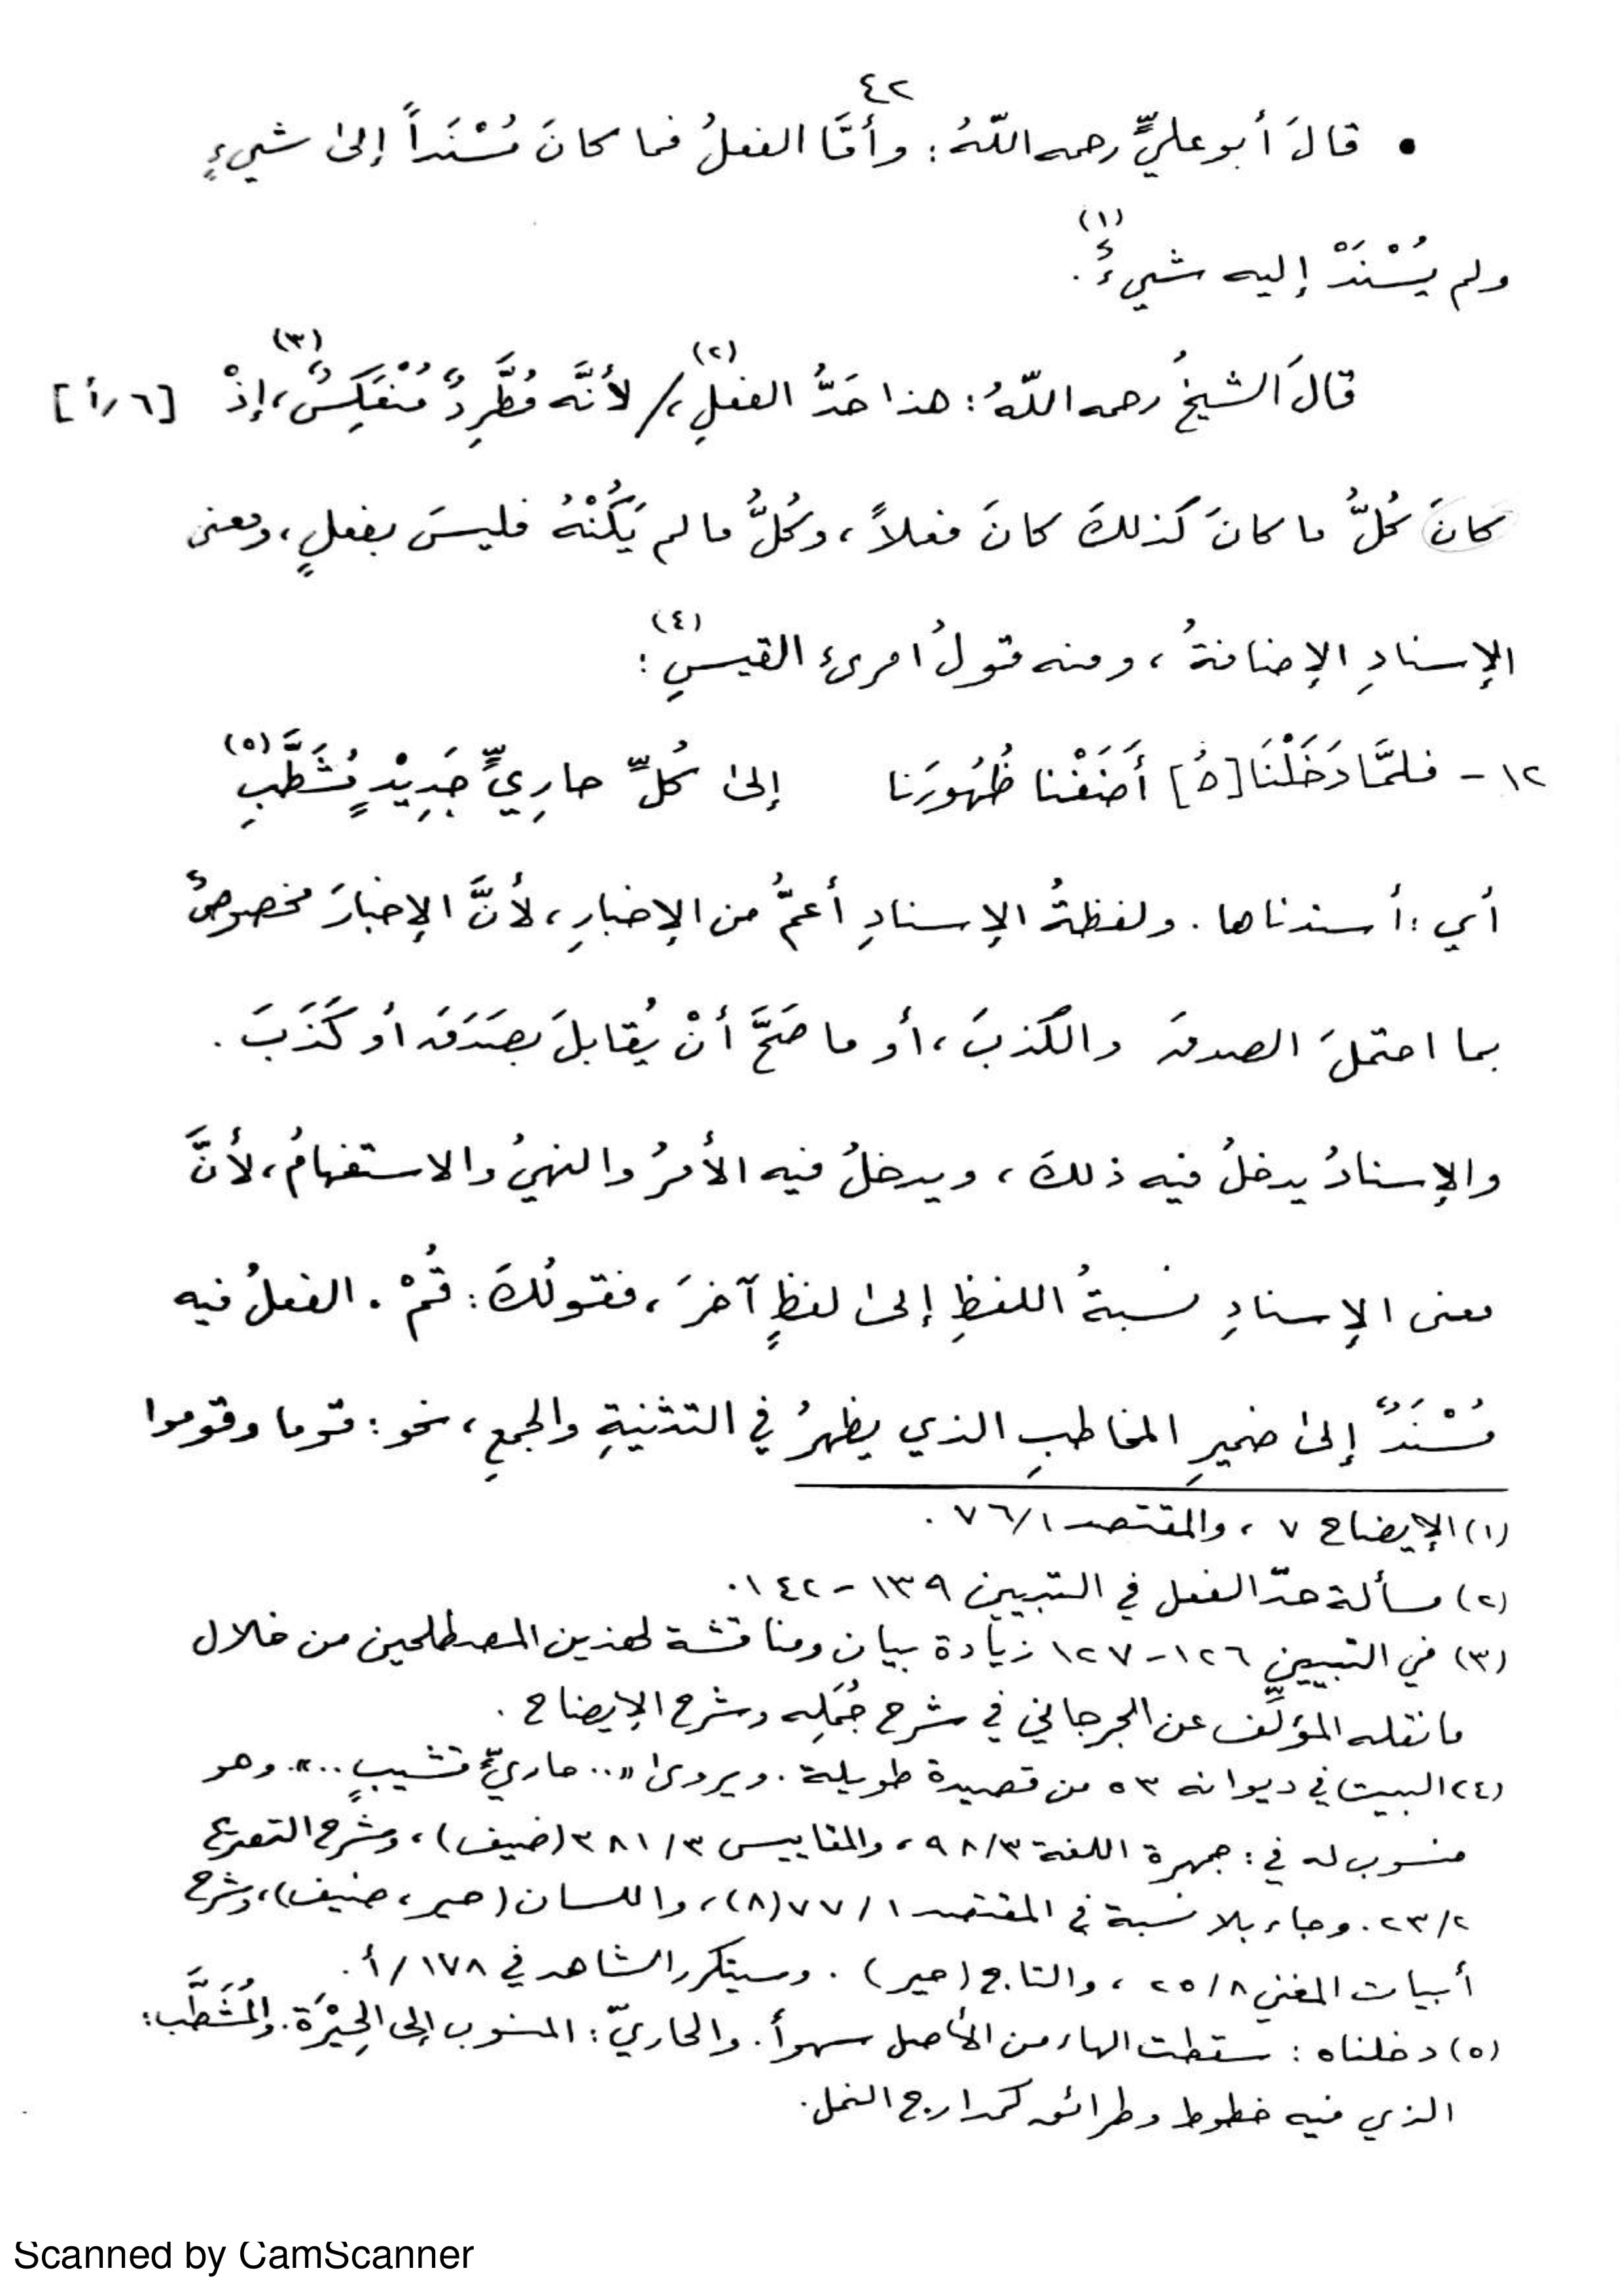 ٤٢
• قالَ أبو عليٍّ رحمه اللّهُ : وأمَّا الفعلُ فما كانَ مُسْنَداً إلىٰ شيءٍ
ولم يُسْنَدْ إليه شيءٌ(١) .
قالَ الشيخُ رحمه اللّهُ : هذا حَدُّ الفعلِ(٢)،/ لأنَّه مُطَّرِدٌ مُنْعَكِسٌ(٣)، إذْ [٦/أ]
كانَ كُلُّ ما كانَ كذلكَ كانَ فعلاً ، وكُلُّ ما لم يَكُنْهُ فليسَ بفعلٍ ، ومعنى
الإسنادِ الإضافةُ ، ومنه قولُ امرئ القيسِ(٤) :
١٢ - فلمَّا دَخَلْنَا[هُ] أَضَفْنا ظُهُورَنا إلىٰ كُلِّ حارِيٍّ جَدِيْدٍ مُشَطَّبِ(٥)
أي : أسندناها . ولفظةُ الإسنادِ أعمُّ من الإخبارِ ، لأنَّ الإخبارَ مخصوصٌ
بما احتملَ الصدقَ والكَذبَ ، أو ما صَحَّ أنْ يُقابلَ بصَدَقَ أو كَذَبَ .
والإسنادُ يدخلُ فيه ذلكَ ، ويدخلُ فيه الأمرُ والنهيُ والاستفهامُ ، لأنَّ
معنى الإسنادِ نسبةُ اللفظِ إلىٰ لفظٍ آخرَ ، فقولُكَ : قُمْ . الفعلُ فيه
مُسْنَدٌ إلىٰ ضميرِ المخاطبِ الذي يظهرُ في التثنيةِ والجمعِ ، نحو : قوما وقوموا
(١) الإيضاح ٧ ، والمقتصد ٧٦/١ .
(٢) مسألة حدّ الفعل في التبيين ١٣٩ - ١٤٢ .
(٣) في التبيين ١٢٦ - ١٢٧ زيادة بيان ومناقشة لهذين المصطلحين من خلال
ما نقله المؤلِّف عن الجرجاني في شرح جُمَلِه وشرح الإيضاح .
(٤) البيت في ديوانه ٥٣ من قصيدة طويلة . ويروىٰ «.. حاريٍّ قشيبٍ ..» . وهو
منسوب له في : جمهرة اللغة ٩٨/٣ ، والمقاييس ٣٨١/٣ (ضيف) ، وشرح التصريح
٢٣/٢ . وجاء بلا نسبة في المقتصد ٧٧/١ (٨) ، واللسان (حير ، ضيف) ، وشرح
أبيات المغني ٢٥/٨ ، والتاج (حير) . وسيتكرر الشاهد في ١٧٨/أ .
(٥) دخلناه : سقطت الهاء من الأصل سهواً . والحاريّ : المنسوب إلى الحِيْرَة . والمُشَطَّب :
الذي فيه خطوط وطرائق كمدارج النمل .
Scanned by CamScanner